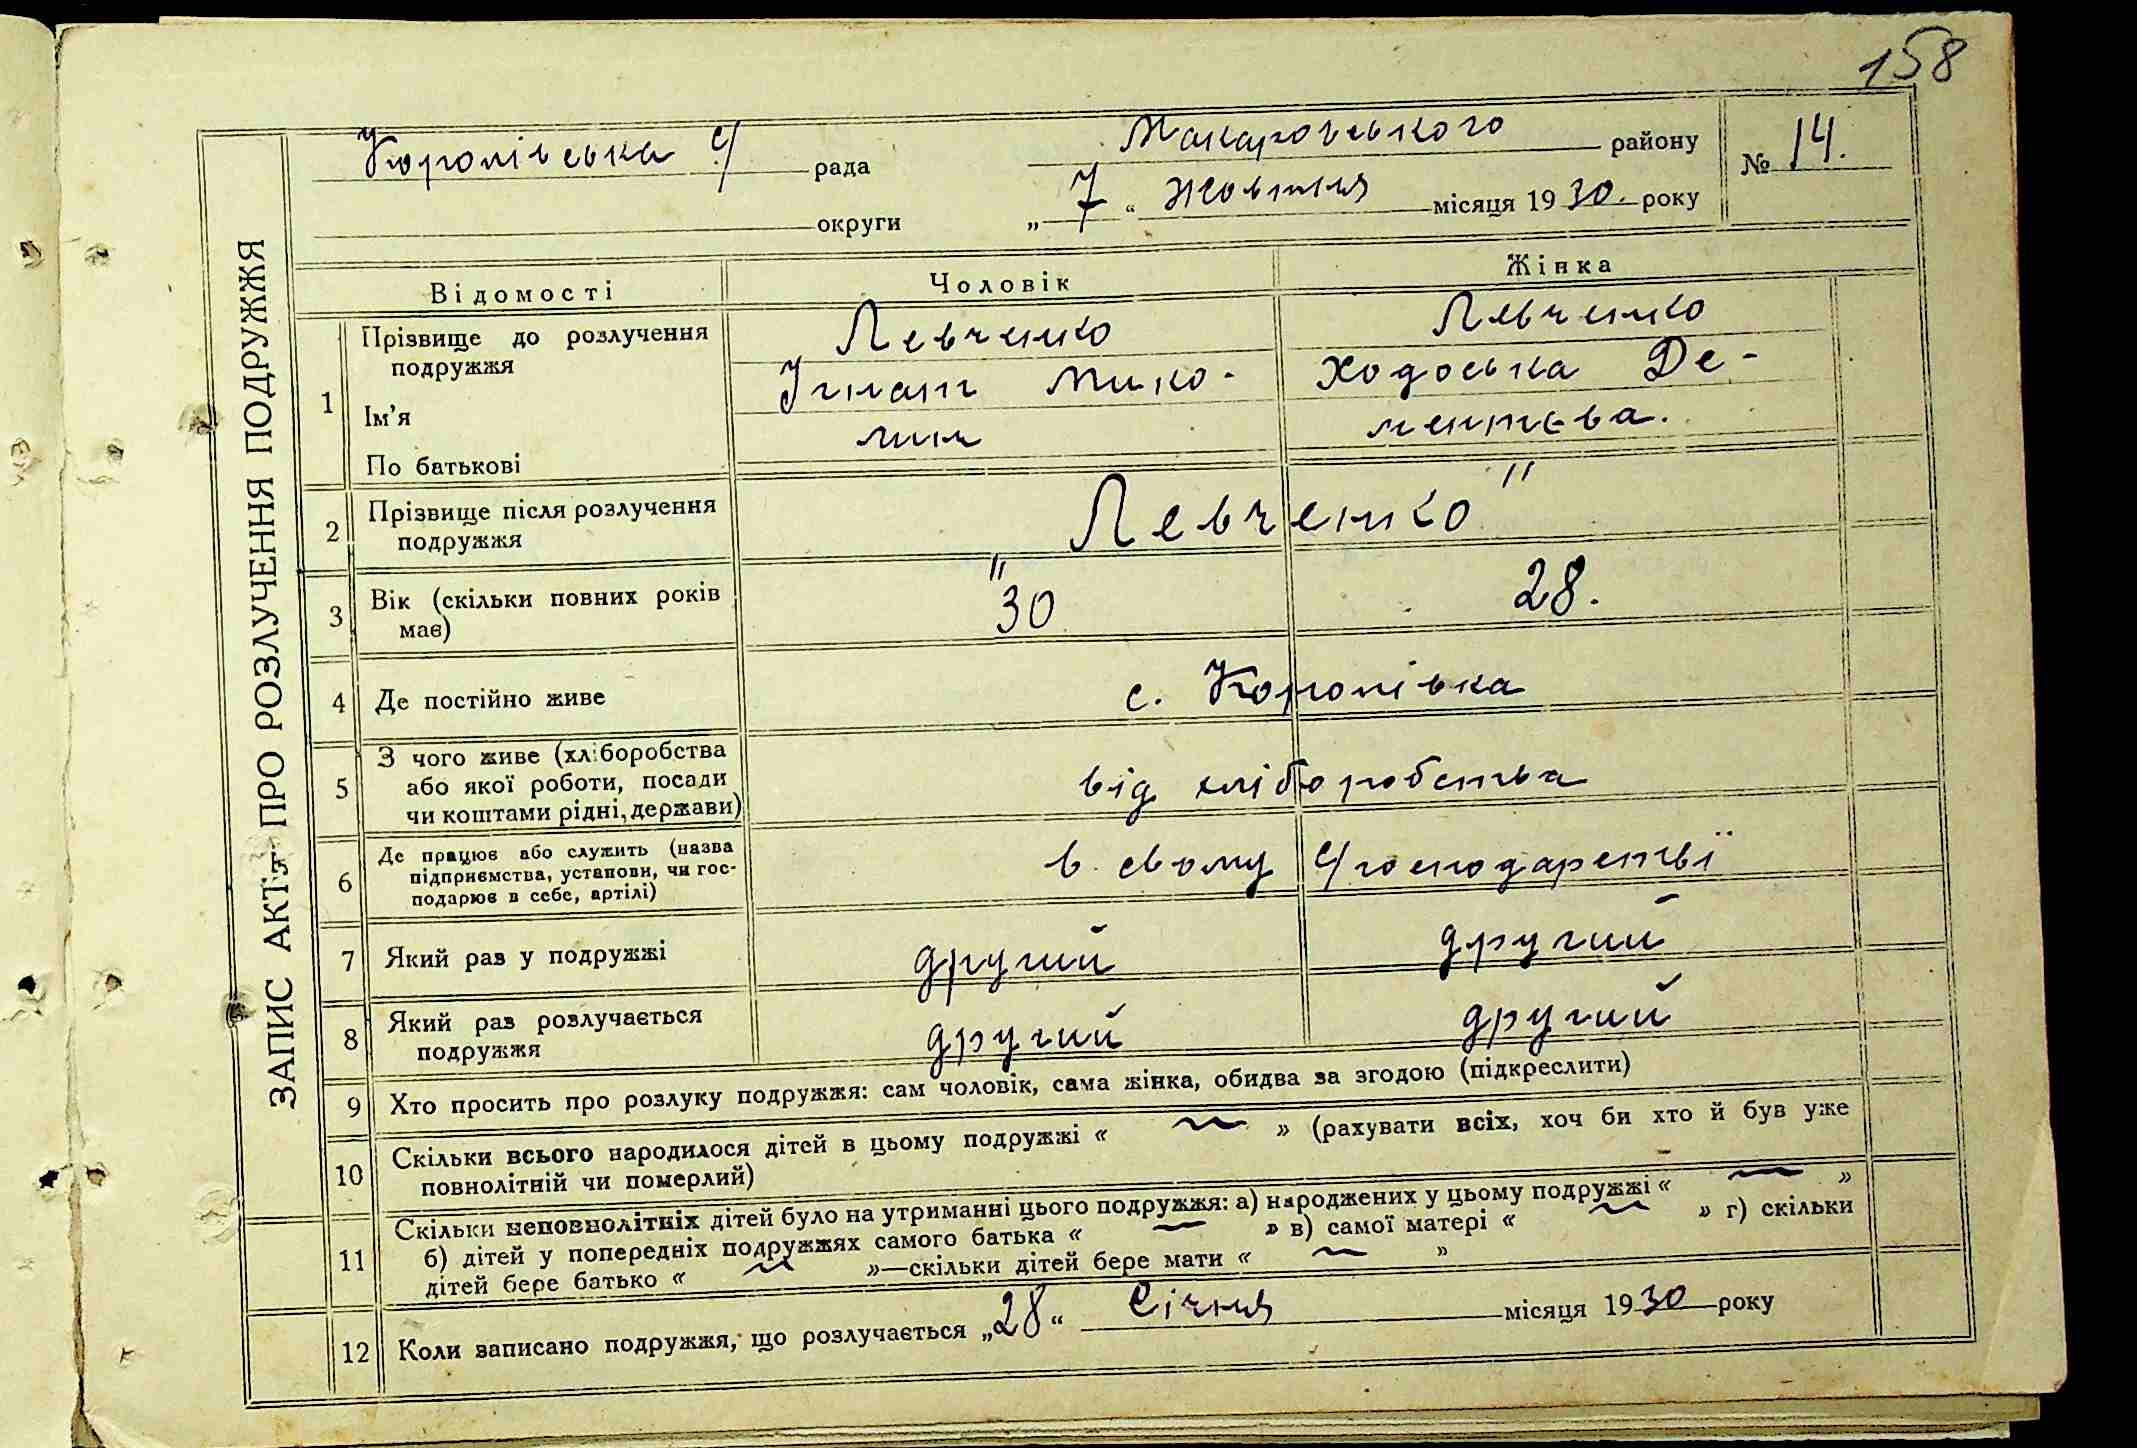 158
ЗАПИС АКТУ ПРО РОЗЛУЧЕННЯ ПОДРУЖЖЯ
Королівська с/ рада Макарівського району № 14.
округи „ 7 “ жовтня місяця 1930. року
Відомості Чоловік Жінка
1 Прізвище до розлучення подружжя Левченко Левченко
Ім'я Ігнат Мико- Ходоська Де-
По батькові лин ментєва.
2 Прізвище після розлучення
подружжя „Левченко"
3 Вік (скільки повних років
має) 30 28.
4 Де постійно живе с. Королівка
5 З чого живе (хліборобства
або якої роботи, посади
чи коштами рідні, держави) від хліборобства
6 Де працює або служить (назва
підприємства, установи, чи гос-
подарює в себе, артілі) в свому с/господарстві
7 Який раз у подружжі другий другий
8 Який раз розлучається
подружжя другий другий
9 Хто просить про розлуку подружжя: сам чоловік, сама жінка, обидва за згодою (підкреслити)
10 Скільки всього народилося дітей в цьому подружжі « — » (рахувати всіх, хоч би хто й був уже
повнолітній чи померлий)
11 Скільки неповнолітніх дітей було на утриманні цього подружжя: а) народжених у цьому подружжі « — »
б) дітей у попередніх подружжях самого батька « — » в) самої матері « — » г) скільки
дітей бере батько « — »—скільки дітей бере мати « — »
12 Коли записано подружжя, що розлучається „28“ Січня місяця 1930 року